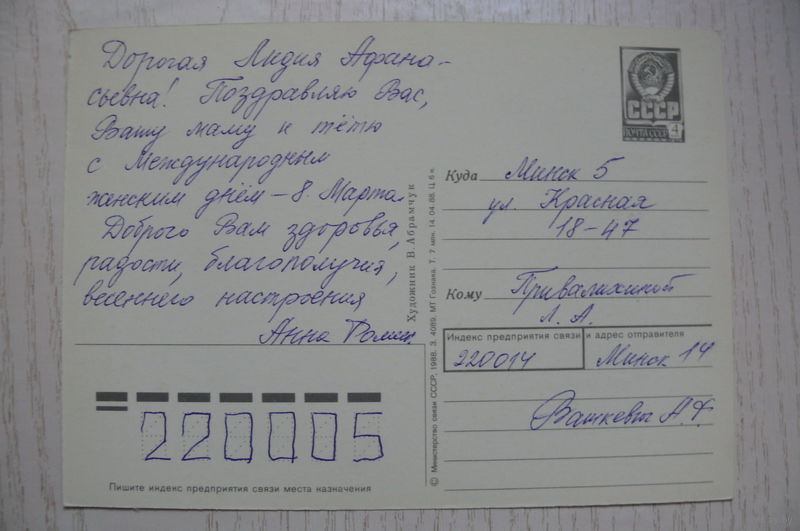 Дорогая Лидия Афана-
сьевна! Поздравляю Вас,
Вашу маму и тётю
с Международным
женским днём – 8 Марта.
Доброго Вам здоровья,
радости, благополучия,
весеннего настроения
Анна
СССР
ПОЧТА СССР 4
Куда Минск 5
ул. Красная
18-47
Кому Привалихиной
Л. А.
Индекс предприятия связи и адрес отправителя
220014 Минск 14
Вашкевич А.Ф.
Художник В. Абрамчук
© Министерство связи СССР, 1988. З. 4069. МТ Гознака. Т. 7 млн. 14.04.88. Ц. 6 к.
220005
Пишите индекс предприятия связи места назначения